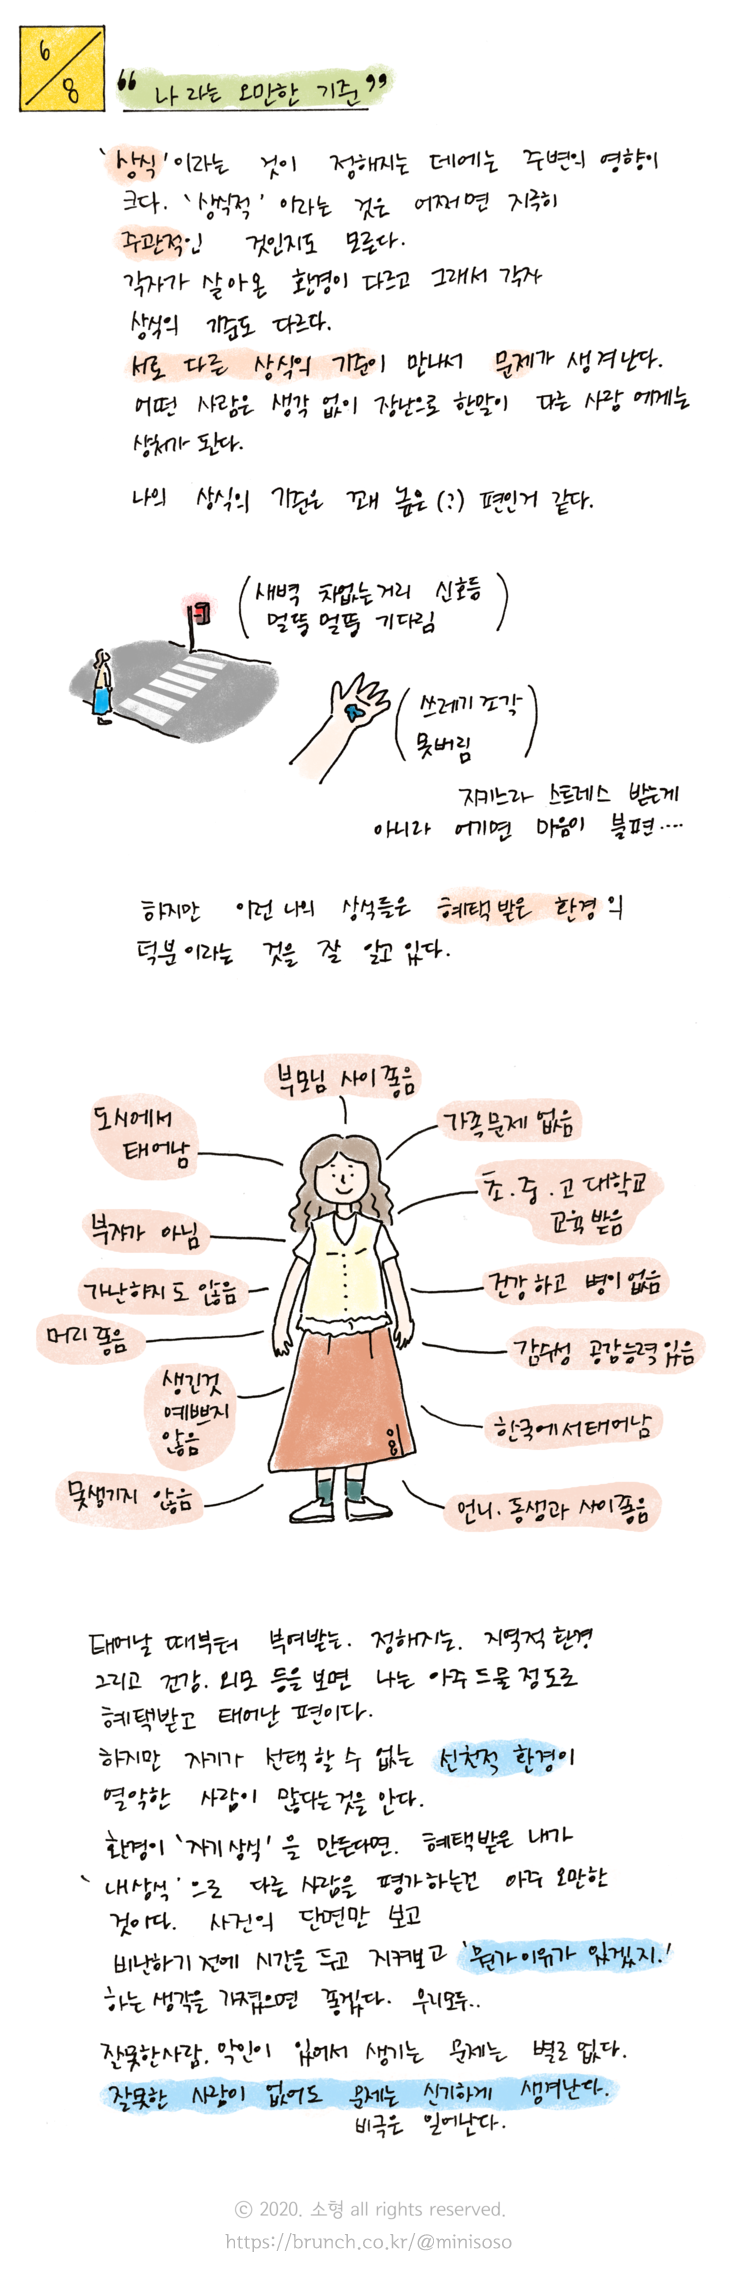 6/8
“나 라는 오만한 기준”
‘상식’이라는 것이 정해지는 데에는 주변의 영향이
크다. ‘상식적’ 이라는 것은 어쩌면 지극히
주관적인 것인지도 모른다.
각자가 살아온 환경이 다르고 그래서 각자
상식의 기준도 다르다.
서로 다른 상식의 기준이 만나서 문제가 생겨난다.
어떤 사람은 생각 없이 장난으로 한말이 다른 사람 에게는
상처가 된다.
나의 상식의 기준은 꽤 높은(?) 편인거 같다.
(새벽 차없는거리 신호등
멀뚱 멀뚱 기다림)
(쓰레기 조각
못버림)
지키느라 스트레스 받는게
아니라 어기면 마음이 불편....
하지만 이런 나의 상식들은 혜택받은 환경의
덕분이라는 것을 잘 알고있다.
부모님 사이 좋음
도시에서
태어남
가족문제 없음
초.중.고 대학교
교육 받음
부자가 아님
가난하지도 않음
건강하고 병이없음
머리 좋음
감수성 공감능력있음
생긴것
예쁘지
않음
한국에서태어남
못생기지 않음
언니.동생과 사이좋음
태어날 때부터 부여받는. 정해지는. 지역적 환경
그리고 건강. 외모 등을 보면 나는 아주 드물 정도로
혜택받고 태어난 편이다.
하지만 자기가 선택할 수 없는 선천적 환경이
열악한 사람이 많다는것을 안다.
환경이 ‘자기상식’을 만든다면. 혜택받은 내가
‘내상식’으로 다른 사람을 평가하는건 아주 오만한
것이다. 사건의 단면만 보고
비난하기 전에 시간을 두고 지켜보고 ‘뭔가이유가 있겠지.’
하는 생각을 가졌으면 좋겠다. 우리모두..
잘못한사람. 악인이 있어서 생기는 문제는 별로 없다.
잘못한 사람이 없어도 문제는 신기하게 생겨난다.
비극은 일어난다.
ⓒ 2020. 소형 all rights reserved.
https://brunch.co.kr/@minisoso